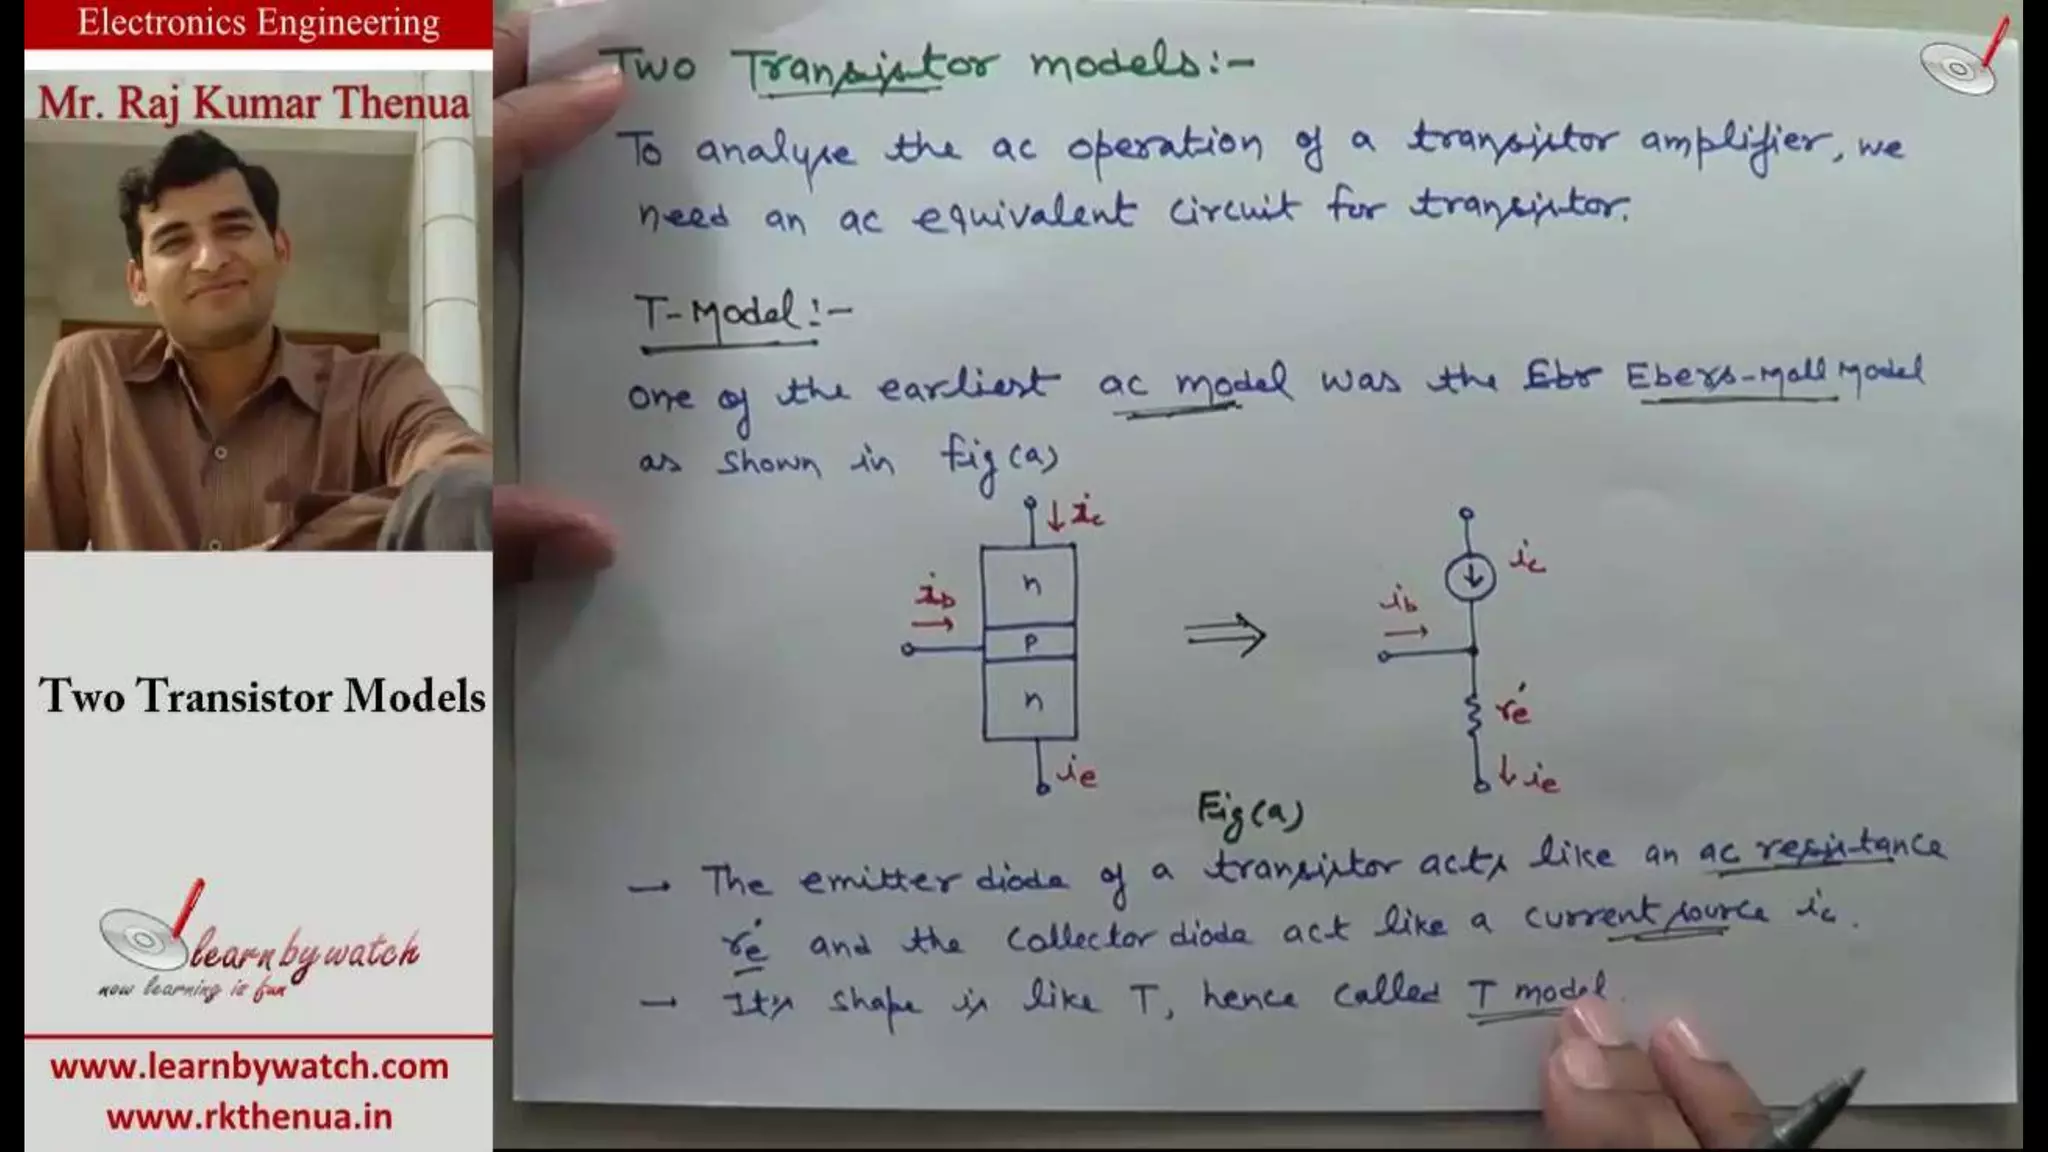 Electronics Engineering
Mr. Raj Kumar Thenua
Two Transistor Models
learnbywatch
now learning is fun
www.learnbywatch.com
www.rkthenua.in
Two Transistor models:-
To analyse the ac operation of a transistor amplifier, we
need an ac equivalent circuit for transistor.
T-Model:-
one of the earliest ac model was the Ebr Ebers-Moll Model
as shown in fig(a)
ic
n
ib
p
n
ie
ic
ib
re'
ie
Fig(a)
→ The emitter diode of a transistor acts like an ac resistance
re' and the collector diode act like a current source ic.
→ Its shape is like T, hence called T model.